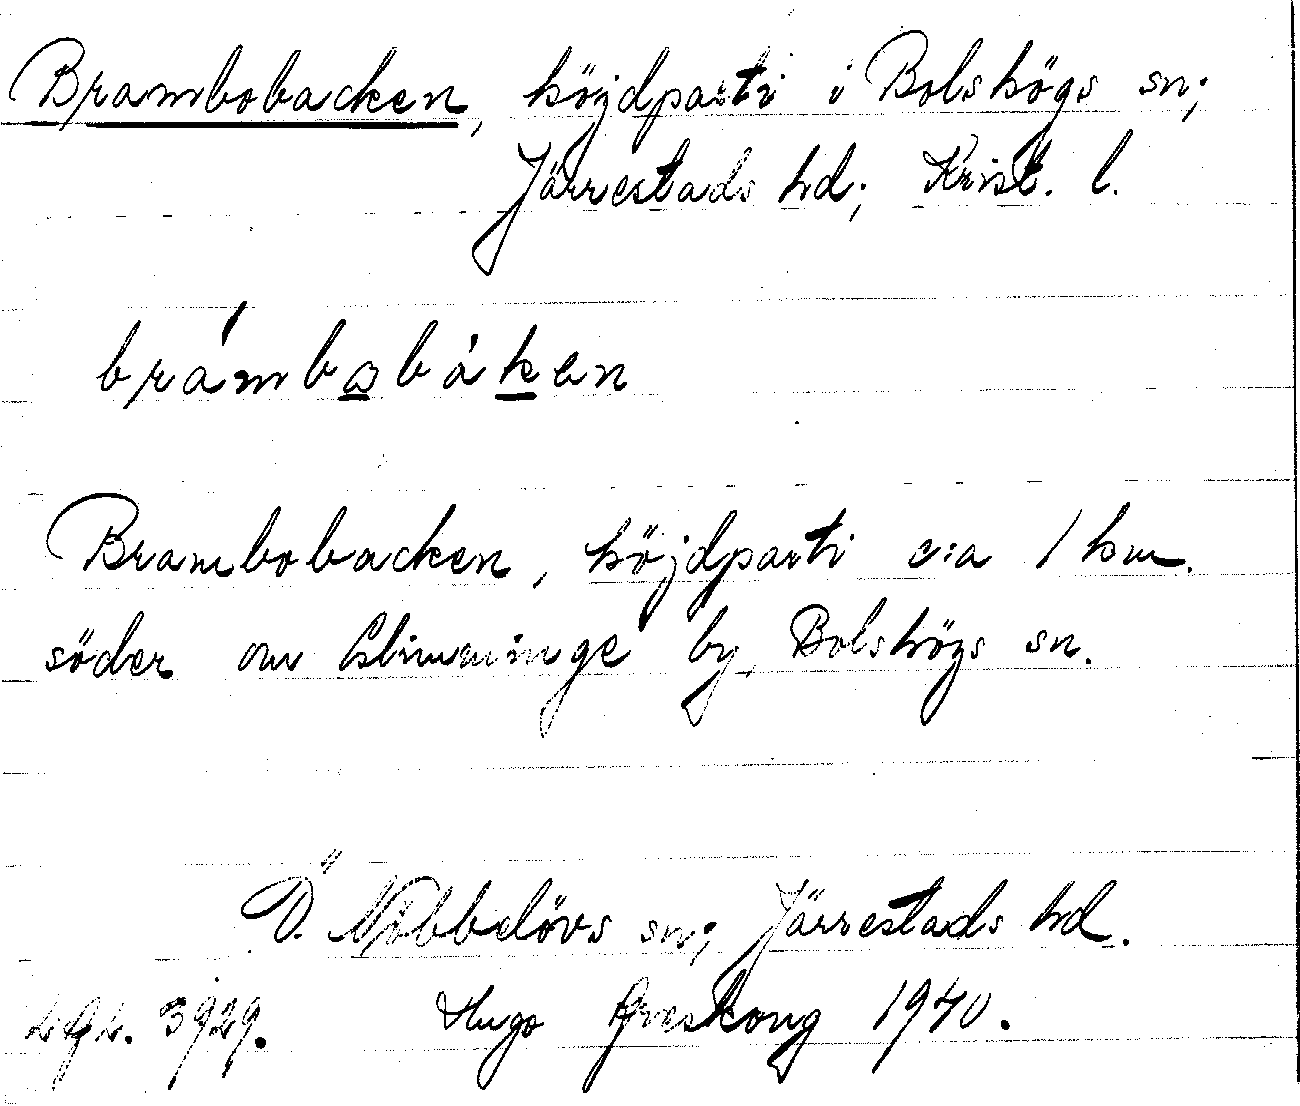 Brambobacken, höjdparti i Bolshögs sn;
Järrestads hd; Krist. l.
brámbobáken
Brambobacken, höjdparti c:a 1 km.
söder om Glimminge by, Bolshögs sn.
Ö. Nöbbelövs sn; Järrestads hd.
3929. Hugo Areskoug 1940.